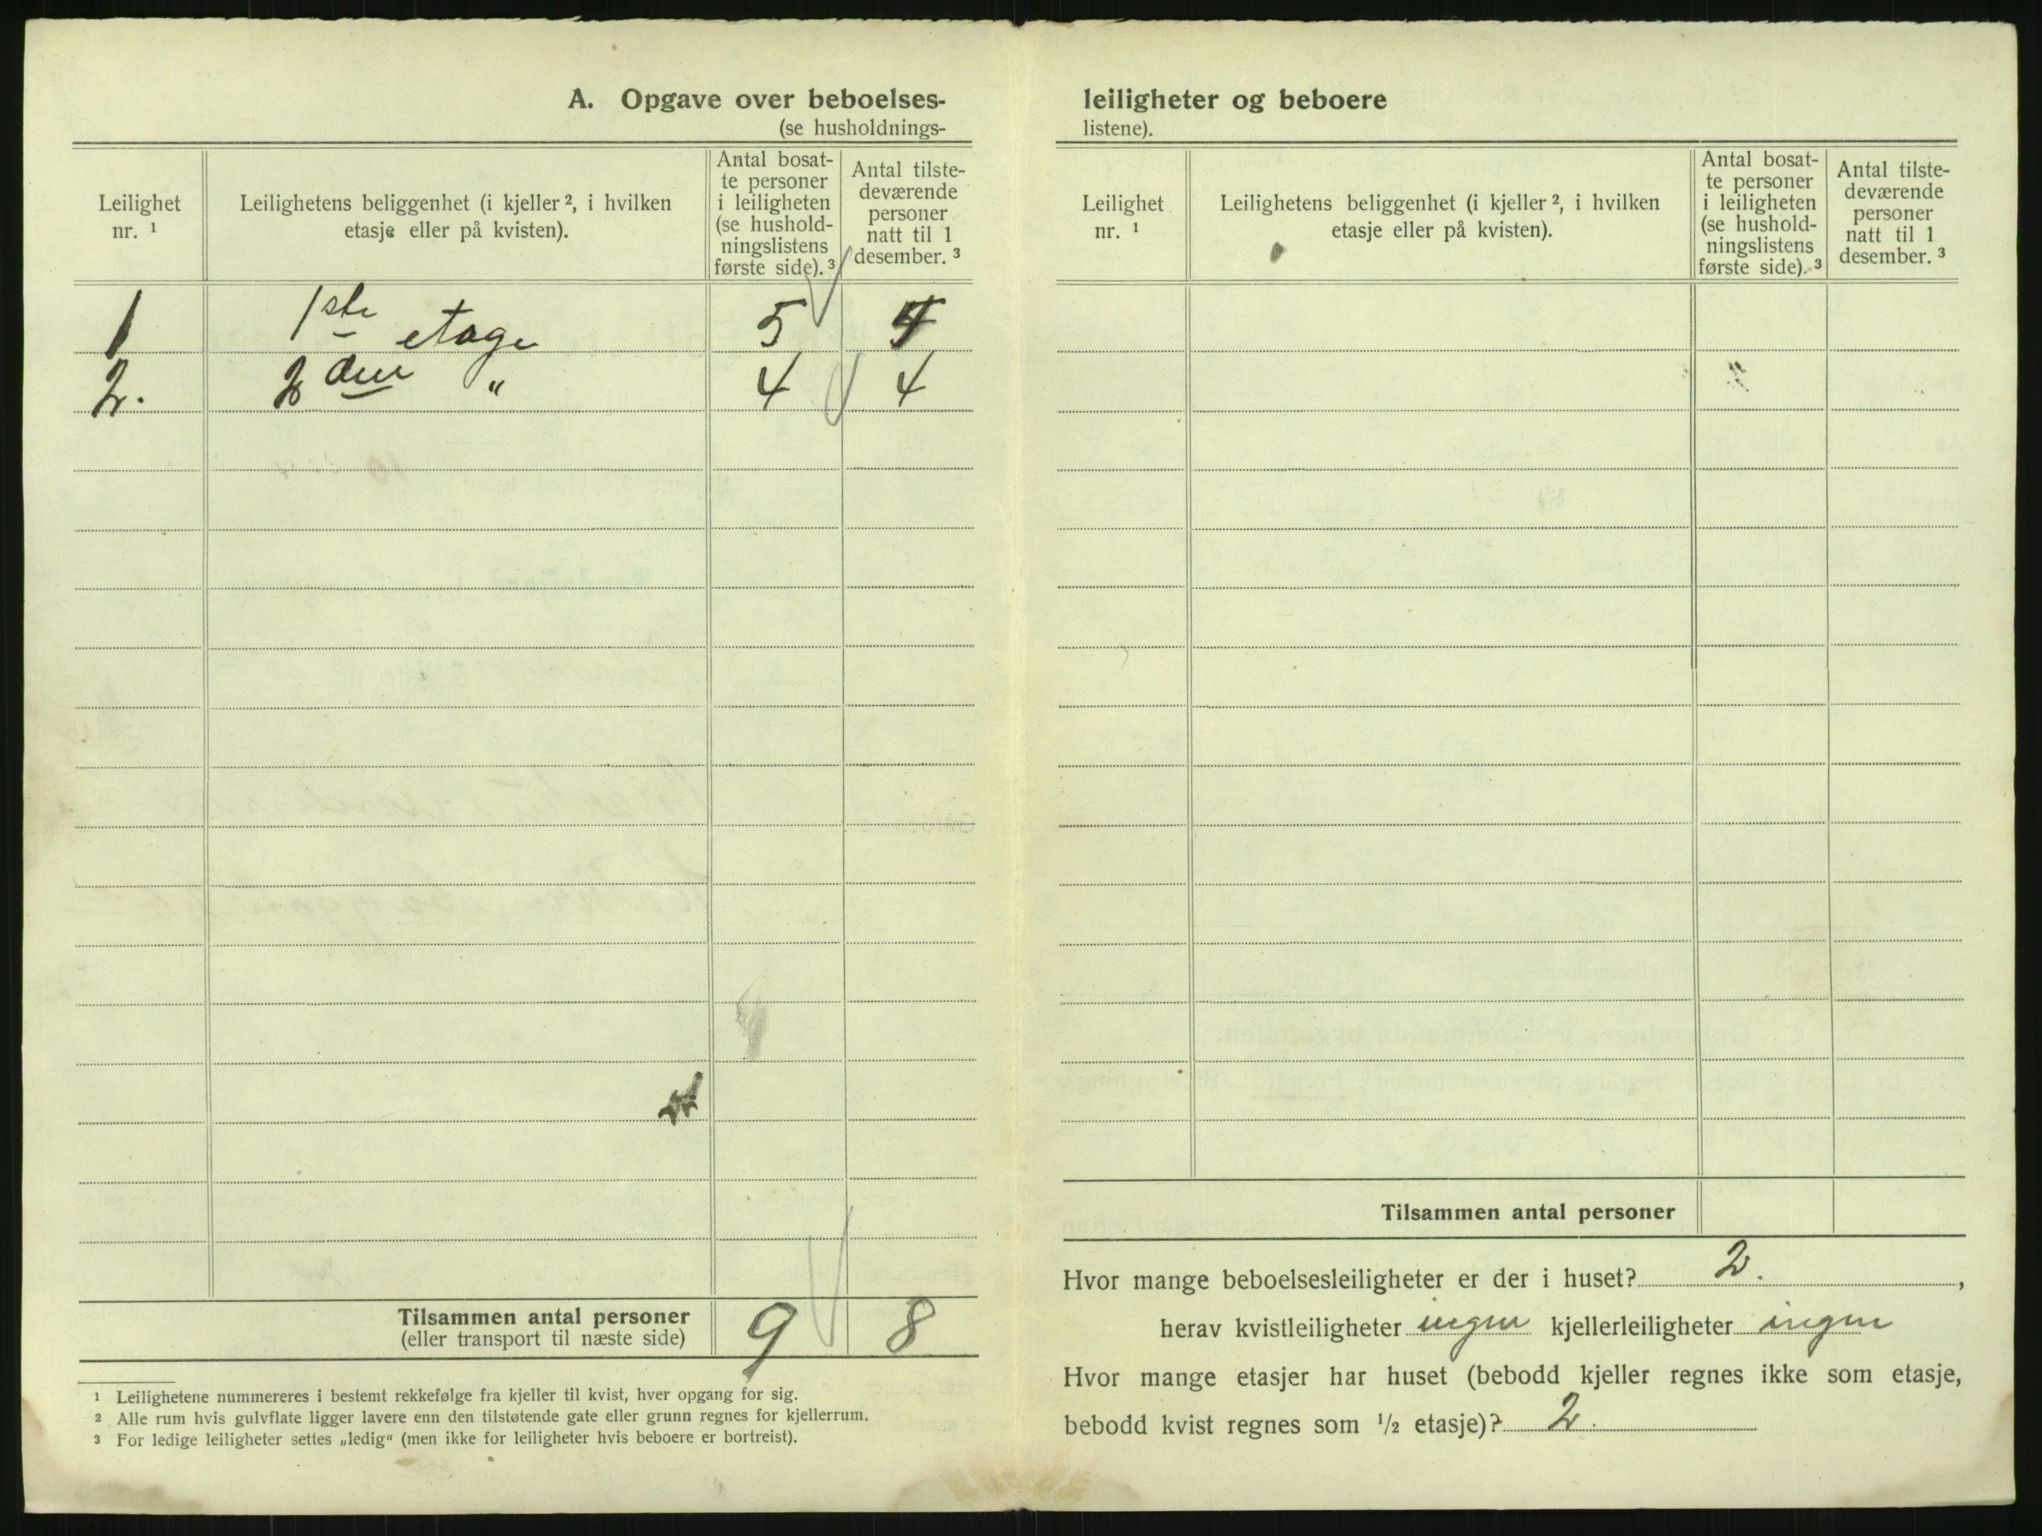 A. Opgave over beboelses-
(se husholdnings-
Leilighet nr. ¹
Leilighetens beliggenhet (i kjeller ², i hvilken etasje eller på kvisten).
Antal bosat-
te personer
i leiligheten
(se hushold-
ningslistens
første side). ³
Antal tilste-
deværende
personer
natt til 1
desember. ³
1 1ste etage 5
2. 2den " 4 4
Tilsammen antal personer 9 8
(eller transport til næste side)
¹ Leilighetene nummereres i bestemt rekkefølge fra kjeller til kvist, hver opgang for sig.
² Alle rum hvis gulvflate ligger lavere enn den tilstøtende gate eller grunn regnes for kjellerrum.
³ For ledige leiligheter settes „ledig“ (men ikke for leiligheter hvis beboere er bortreist).
leiligheter og beboere
listene).
Leilighet nr. ¹
Leilighetens beliggenhet (i kjeller ², i hvilken
etasje eller på kvisten).
Antal bosat-
te personer
i leiligheten
(se hushold-
ningslistens
første side). ³
Antal tilste-
deværende
personer
natt til 1
desember. ³
Tilsammen antal personer
Hvor mange beboelsesleiligheter er der i huset? 2. ,
herav kvistleiligheter ingen kjellerleiligheter ingen
Hvor mange etasjer har huset (bebodd kjeller regnes ikke som etasje,
bebodd kvist regnes som ½ etasje)? 2.